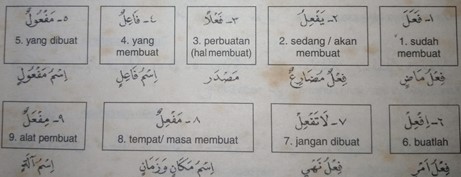 ١- فَعَلَ
1. sudah
membuat
فِعْلُ مَاضٍ
٢- يَفْعِلُ
2. sedang / akan
membuat
فِعْلُ مُضَارِعٌ
٣- فَعْلًا
3. perbuatan
(hal membuat)
مَصْدَر
٤- فَاعِلٌ
4. yang
membuat
إِسْمُ فَاعِلٍ
٥- مَفْعُولٌ
5. yang dibuat
إِسْمُ مَفْعُولٍ
٦- اِفْعِلْ
6. buatlah
فِعْلُ أَمْرٍ
٧- لَا تَفْعِلْ
7. jangan dibuat
فِعْلُ نَهْيٍ
٨- مَفْعِلٌ
8. tempat/ masa membuat
إِسْمُ مَكَانٍ وَزَمَانٍ
٩- مِفْعَلٌ
9. alat pembuat
إِسْمُ آلَةٍ